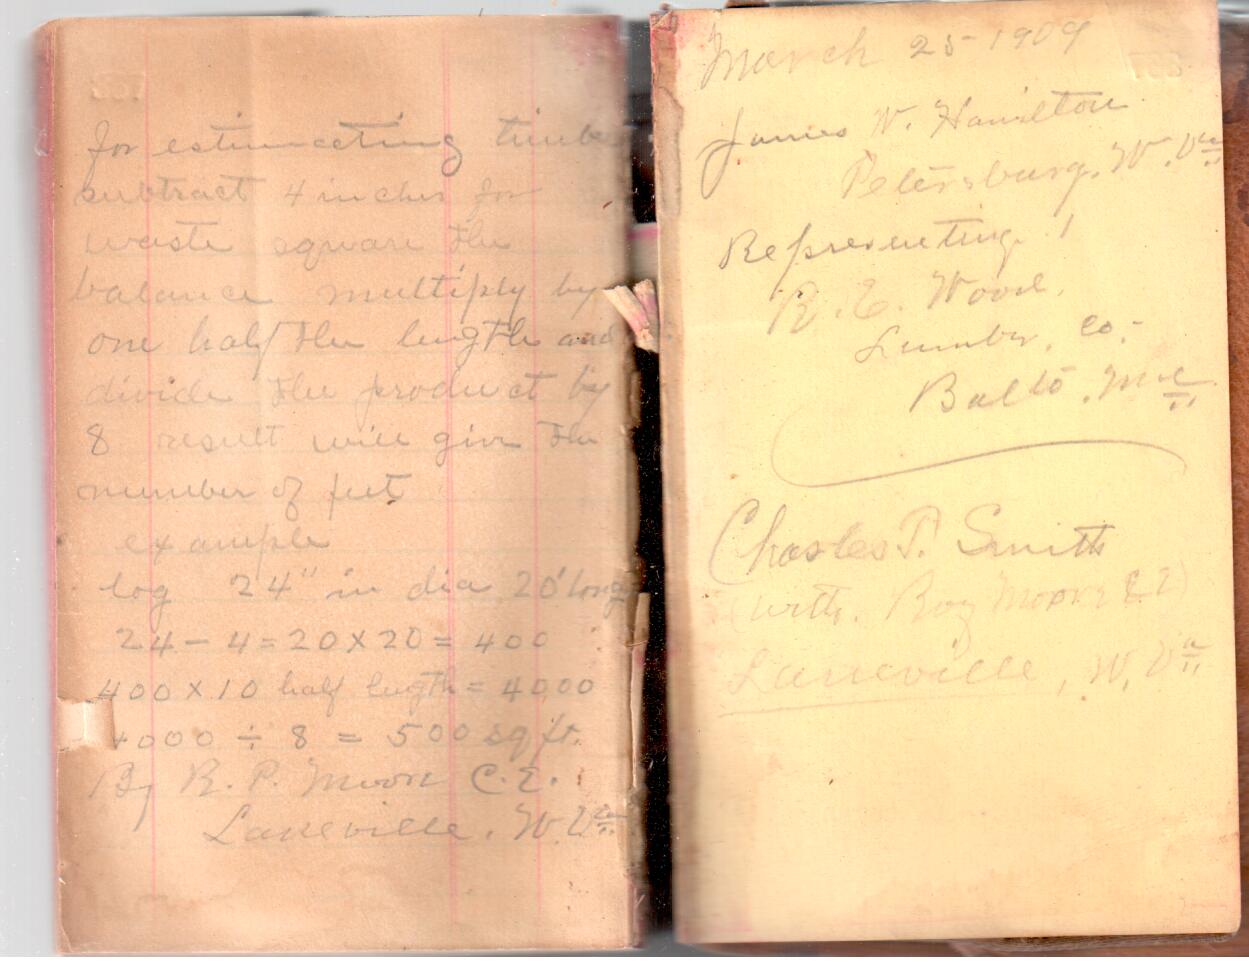 for estimating timber
subtract 4 inches for
waste square the
balance multiply by
one half the length and
divide the product by
8 result will give the
number of feet
example
log 24" in dia 20' long
24 - 4 = 20 X 20 = 400
400 X 10 half length = 4000
4000 ÷ 8 = 500 sq ft.
By R. P. Moore C.E.
Laneville, W. Va
March 25 - 1909
James W. Hamilton
Petersburg, W. Va
Representing
R. E. Wood
Lumber, Co.
Balto. Md
Charles T. Smith
(with. Roy Moore C E)
Laneville, W. Va